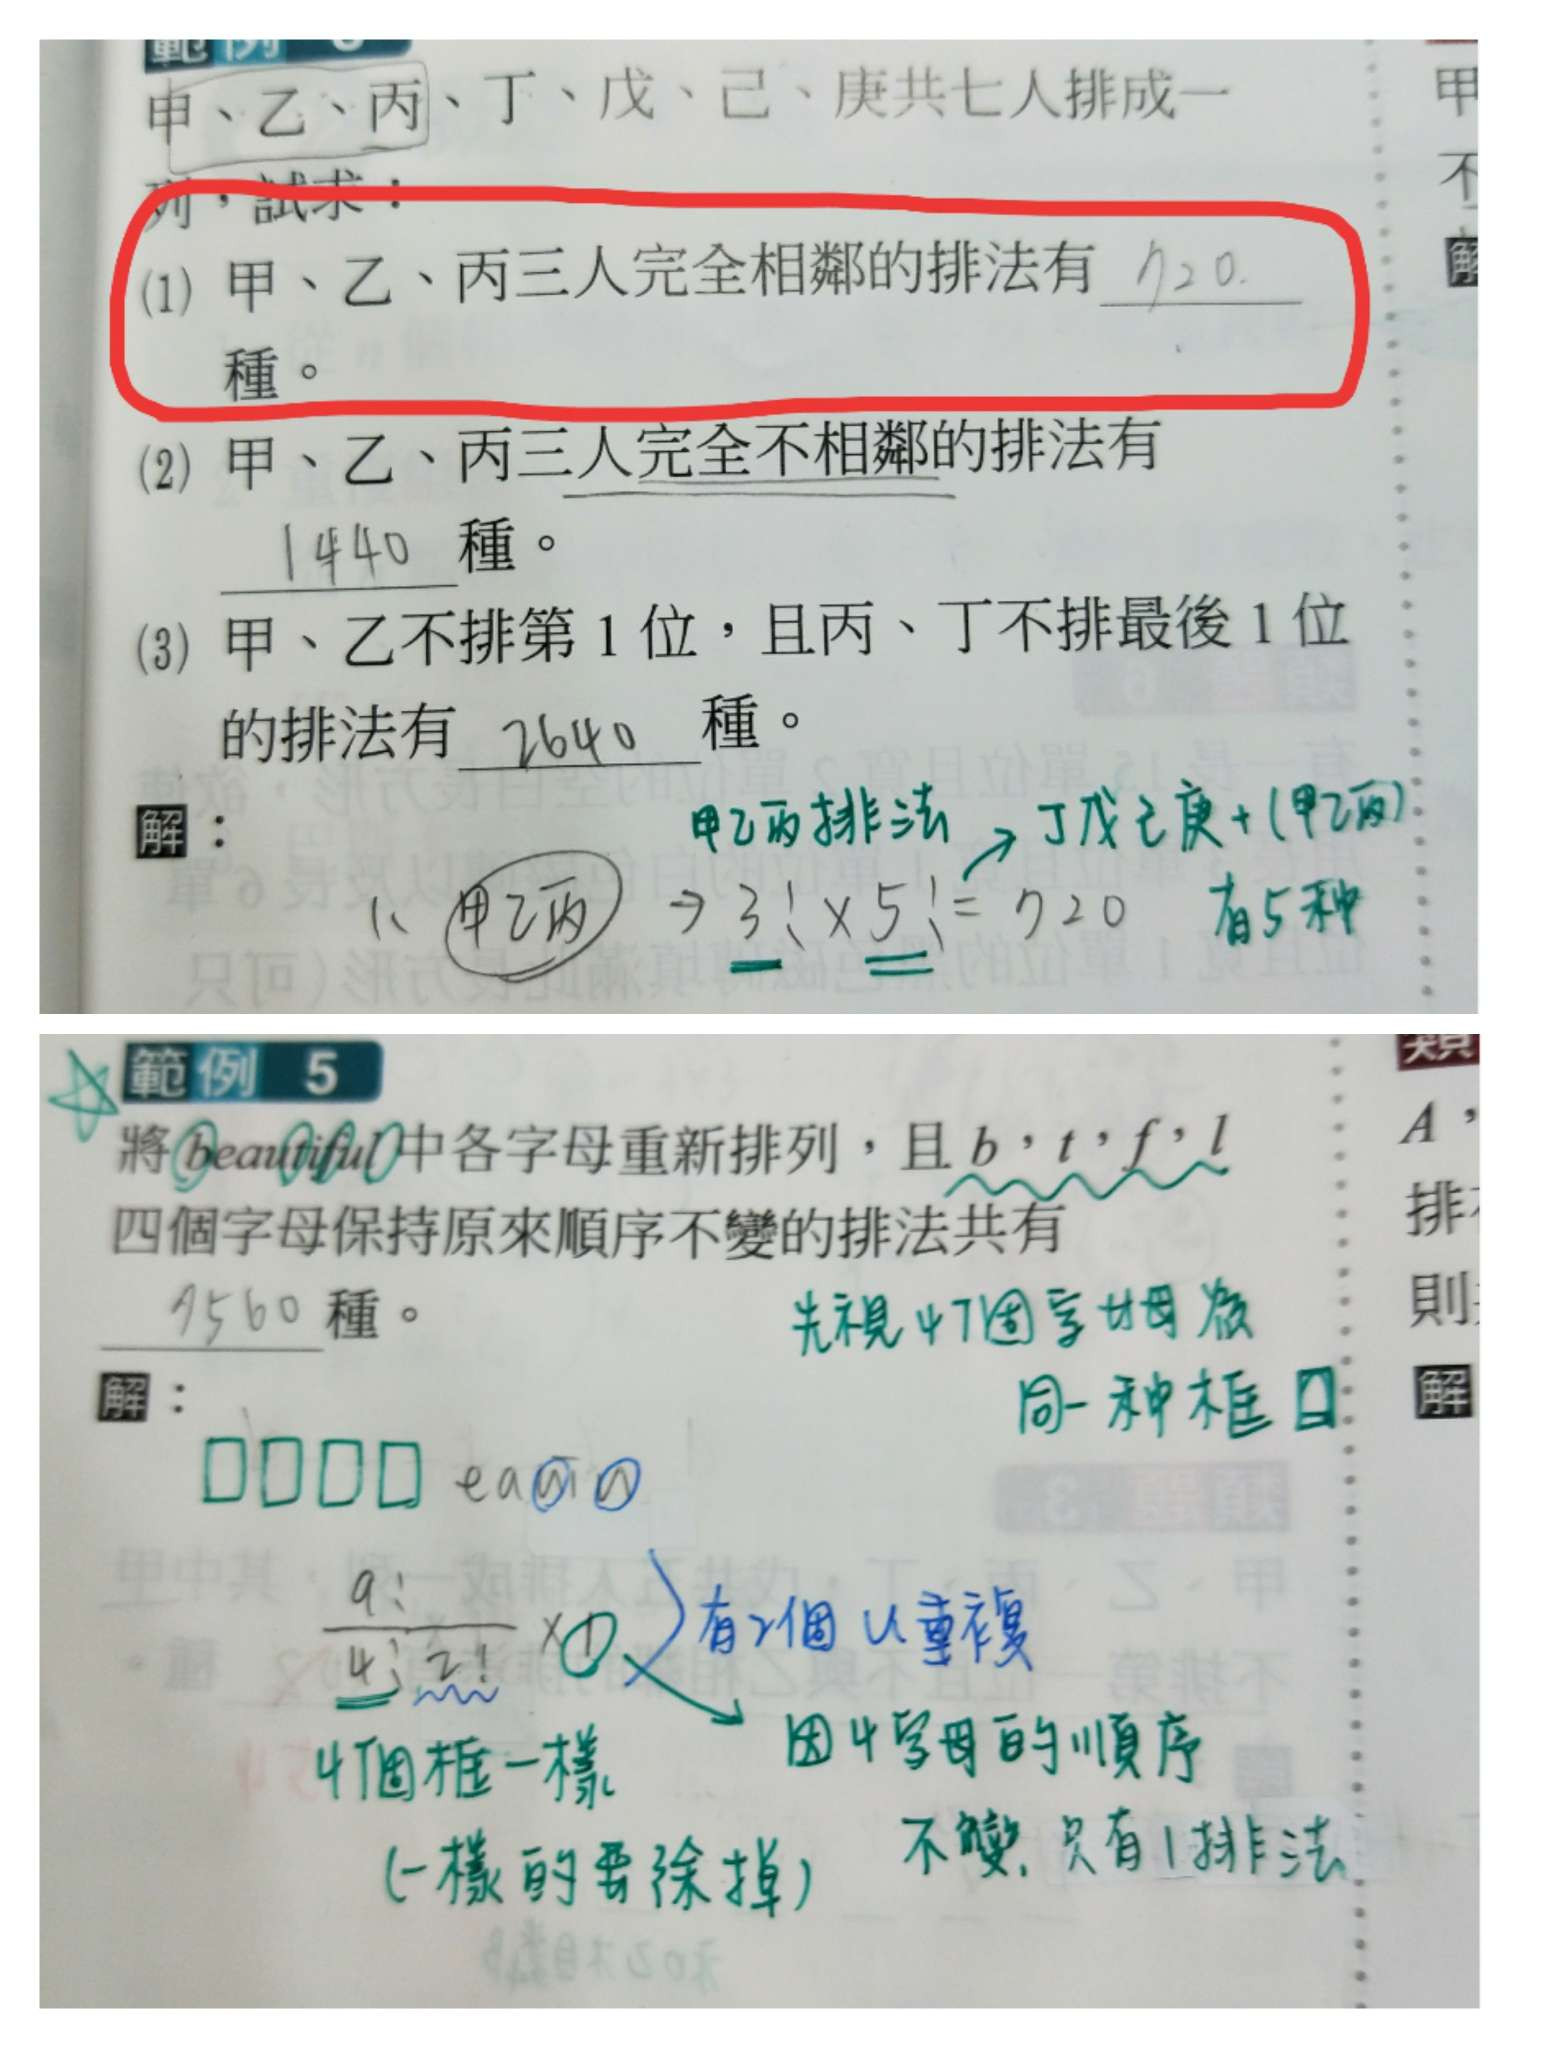 範例
甲、乙、丙、丁、戊、己、庚共七人排成一
列，試求：
(1) 甲、乙、丙三人完全相鄰的排法有 720.
種。
(2) 甲、乙、丙三人完全不相鄰的排法有
1440 種。
(3) 甲、乙不排第 1 位，且丙、丁不排最後 1 位
的排法有 2640 種。
解：
甲乙丙排法 → 丁戊己庚+(甲乙丙)
1、甲乙丙 → 3! × 5! = 720 有5种
甲
不
解
範例 5
將 beautiful 中各字母重新排列，且 b，t，f，l
四個字母保持原來順序不變的排法共有
7560 種。
先視4個字母為
同一种框□
解：
□□□□ eauiu
9!
4! 2! ×1
有2個u重複
4個框一樣
(一樣的要除掉)
因4字母的順序
不變，只有1排法
類
A，
排
則
解